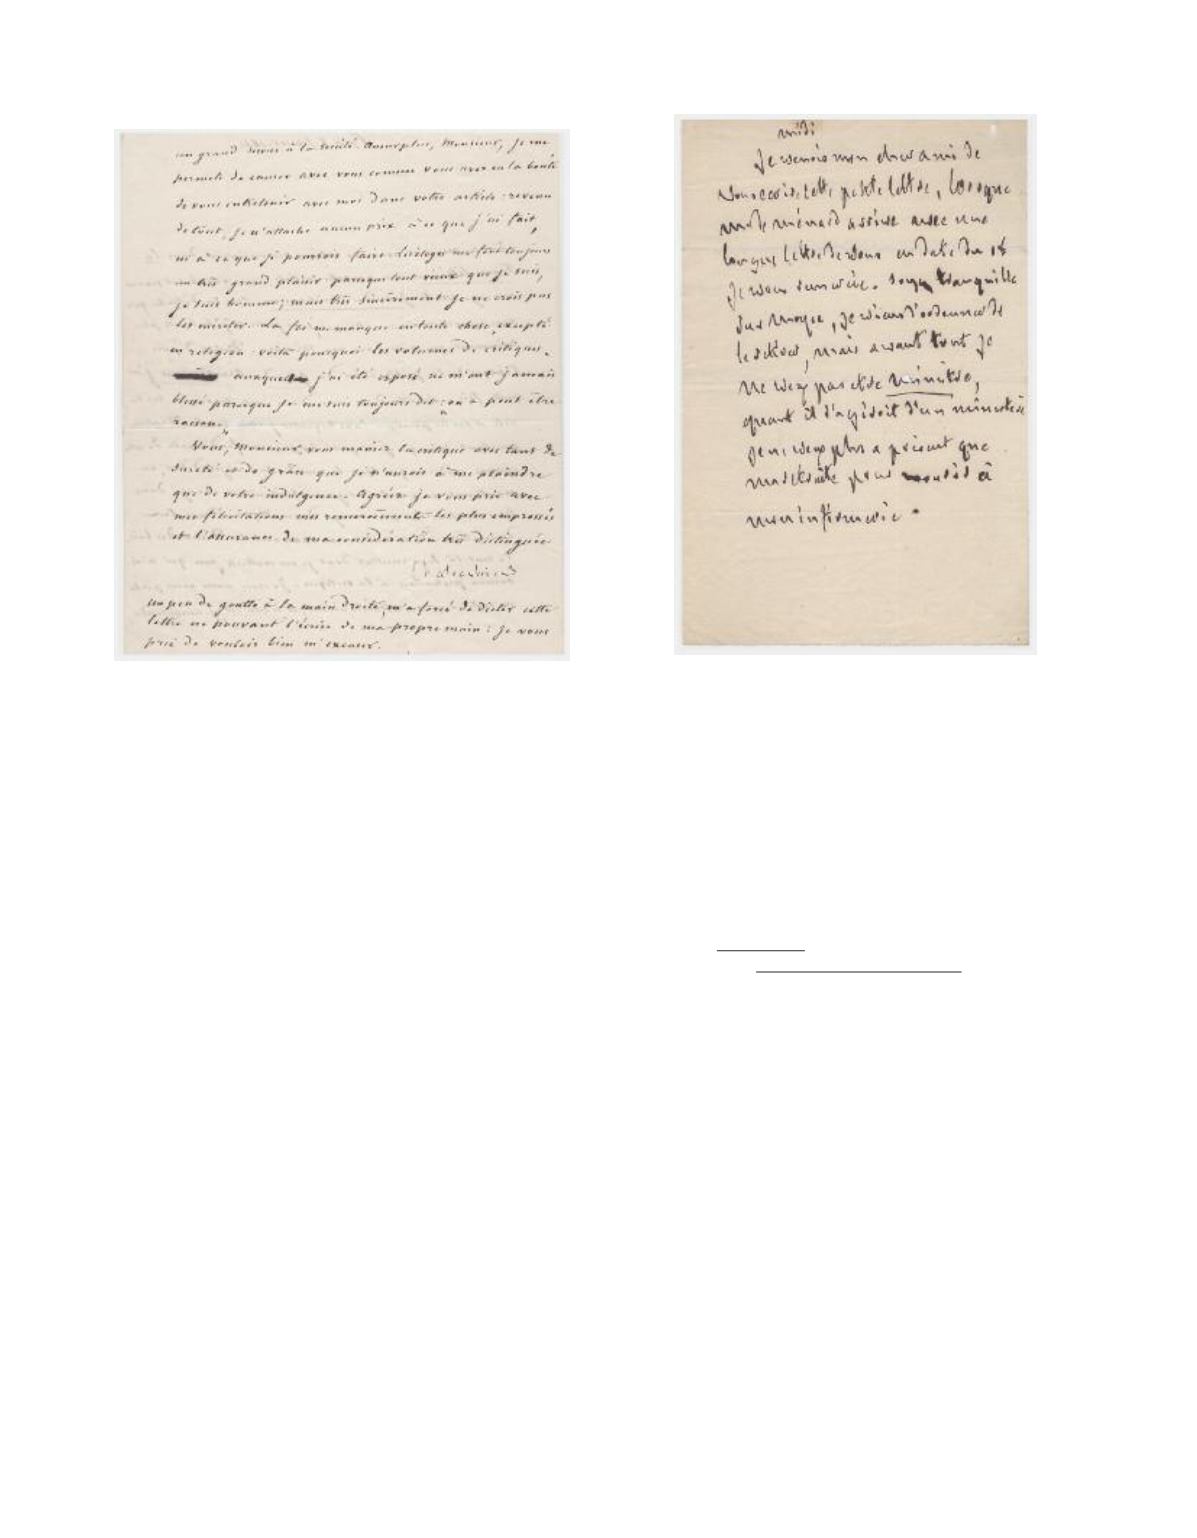 un grand service à la société. Au surplus, Monsieur, je me
permets de causer avec vous comme vous avez eu la bonté
de vous entretenir avec moi dans votre article : revenu
de tout, je n'attache aucun prix à ce que j'ai fait,
ni à ce que je pourrois faire. L'éloge me fait toujours
un très grand plaisir parceque tout vieux que je suis,
je suis homme ; mais très sincèrement je ne crois pas
les mériter. La foi me manque en toute chose, excepté
en religion : voilà pourquoi les volumes de critiques
auxquels j'ai été exposé ne m'ont jamais
blessé parceque je me suis toujours dit : "on a peut être
raison."
Vous, Monsieur, vous maniez la critique avec tant de
sureté et de grâce que je n'aurois à me plaindre
que de votre indulgence. Agréez je vous prie avec
mes félicitations mes remerciements les plus empressés
et l'assurance de ma considération très distinguée
un peu de goutte à la main droite, m'a forcé de dicter cette
lettre ne pouvant l'écrire de ma propre main : je vous
prie de vouloir bien m'excuser.
midi
Je venois mon cher ami de
vous écrire cette petite lettre, lorsque
arrive avec une
longue lettre de vous en date du 18
Je veux . soyez tranquille
sur , je viens d'
, mais avant tout je
ne veux pas etre ministre,
quant il s'agiroit d'un ministère
je ne veux plus a present que
ma retraite pour à
mon infirmerie.